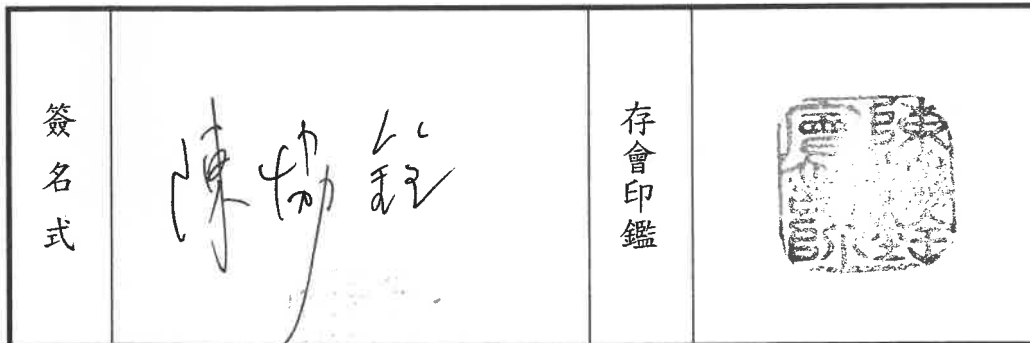 簽名式
陳協銓
存會印鑑